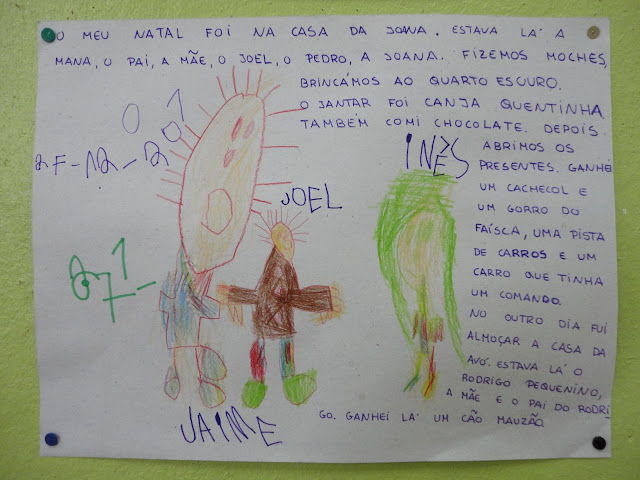 O MEU NATAL FOI NA CASA DA JOANA. ESTAVA LÁ A
MANA, O PAI, A MÃE, O JOEL, O PEDRO, A JOANA. FIZEMOS MOCHES,
BRINCÁMOS AO QUARTO ESCURO.
O JANTAR FOI CANJA QUENTINHA.
TAMBÉM COMI CHOCOLATE. DEPOIS
ABRIMOS OS
PRESENTES. GANHEI
UM CACHECOL E
UM GORRO DO
FAÍSCA, UMA PISTA
DE CARROS E UM
CARRO QUE TINHA
UM COMANDO.
NO OUTRO DIA FUI
ALMOÇAR A CASA DA
AVÓ. ESTAVA LÁ O
RODRIGO PEQUENINO,
A MÃE E O PAI DO RODRI-
GO. GANHEI LÁ UM CÃO MAUZÃO.
INÊS
JOEL
JAIME